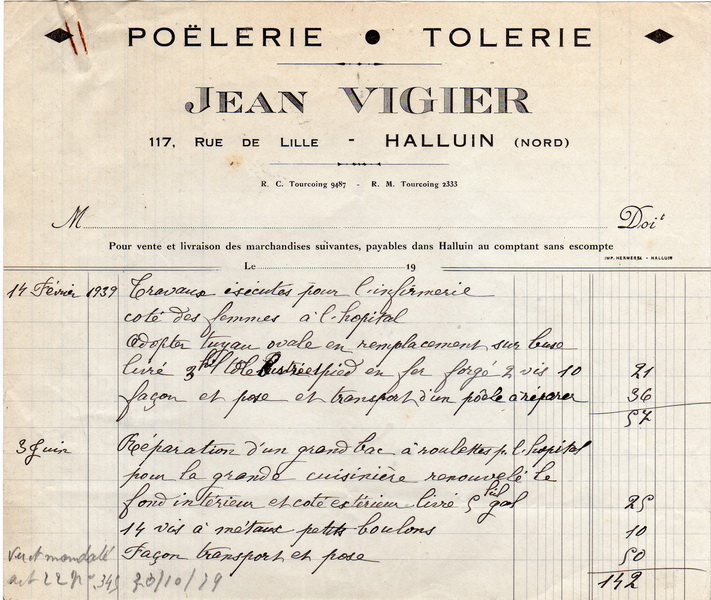 POËLERIE ● TOLERIE
JEAN VIGIER
117, RUE DE LILLE - HALLUIN (NORD)
R. C. Tourcoing 9487 - R. M. Tourcoing 2333
M Doit
Pour vente et livraison des marchandises suivantes, payables dans Halluin au comptant sans escompte
IMP. HERWERSE - HALLUIN
Le 19
14 Février 1939 Travaux éxécutés pour l'infirmerie
coté des femmes à l'hopital
Adopter tuyau ovale en remplacement sur buse
livré 3 kil tôle pied en fer forgé 2 vis 10 21
façon et pose et transport d'un poêle à réparer 36
57
3 Juin Réparation d'un grand bac à roulettes p. l'hopital
pour la grande cuisinière renouvelé le
fond intérieur et coté extérieur livré 5 kil gal 25
14 vis à métaux petits boulons 10
Façon transport et pose 50
142
Vu et mandaté
art 22 N° 345 20/10/39